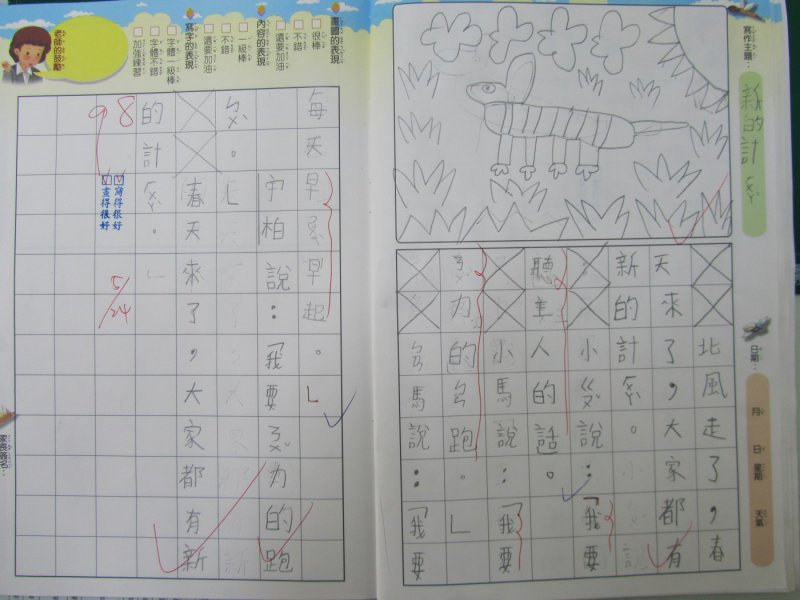 寫作主題：
新的計
日期：
月 日 星期 天氣
北風走了，春
天來了，大家都有
新的計
小ㄍㄡˇ說：「我要
人的話。
小馬說：「我要
力的跑。」
馬說：「我要
畫圖的表現
很棒
不錯
還要加油
內容的表現
一級棒
不錯
還要加油
寫字的表現
字體一級棒
字體不錯
加強練習
老師的鼓勵
每天早早起。」
宇柏說：「我要ㄋㄨˇ力的跑
春天來了，大家都有新
的計ㄏㄨㄚˋ。」
98
寫得很好
畫得很好
5/24
家長簽名：